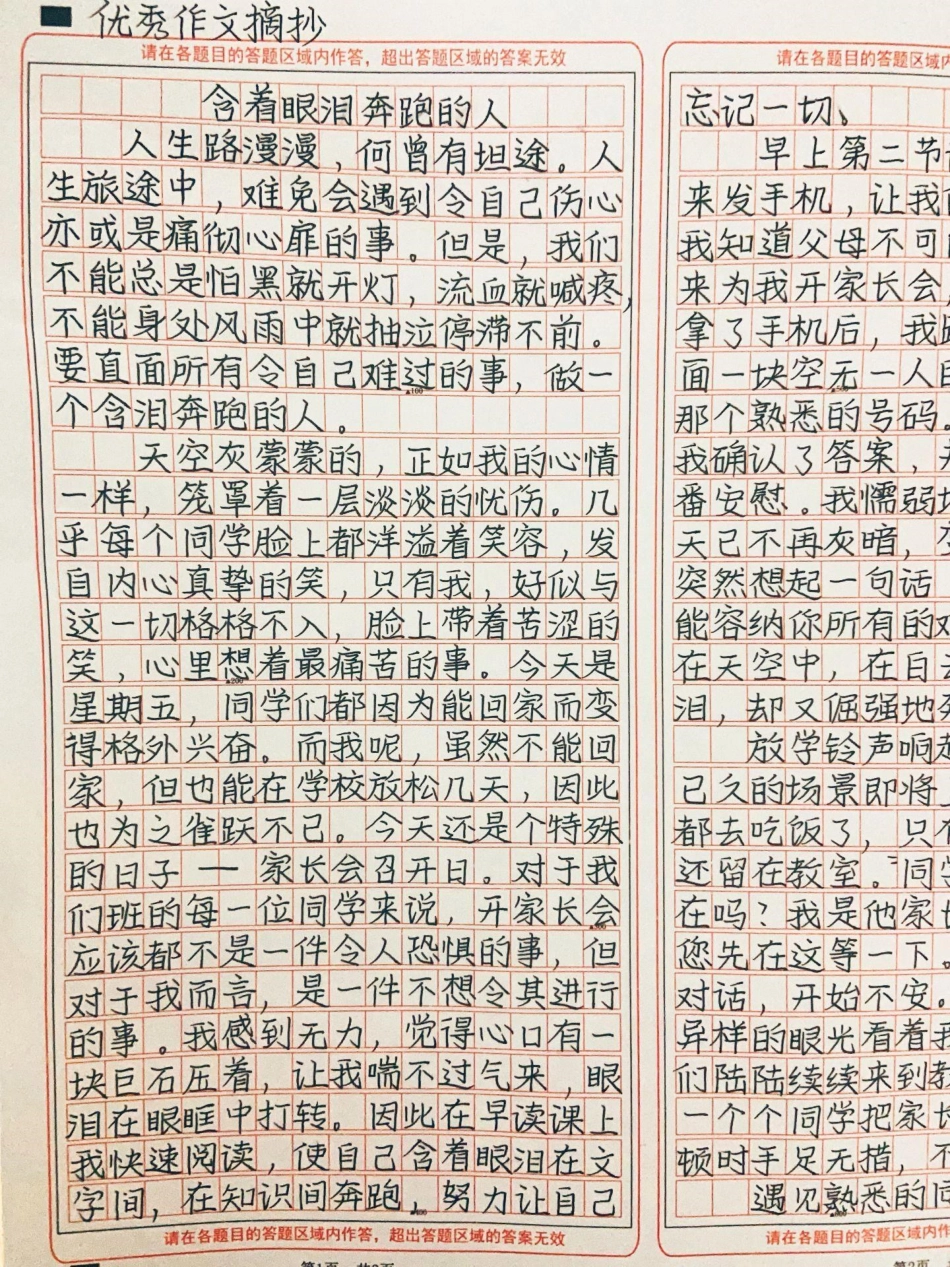 优秀作文摘抄
请在各题目的答题区域内作答，超出答题区域的答案无效
含着眼泪奔跑的人
人生路漫漫，何曾有坦途。人
生旅途中，难免会遇到令自己伤心
亦或是痛彻心扉的事。但是，我们
不能总是怕黑就开灯，流血就喊疼，
不能身处风雨中就抽泣停滞不前。
要直面所有令自己难过的事，做一
▲100
个含泪奔跑的人。
天空灰蒙蒙的，正如我的心情
一样，笼罩着一层淡淡的忧伤。几
乎每个同学脸上都洋溢着笑容，发
自内心真挚的笑，只有我，好似与
这一切格格不入，脸上带着苦涩的
笑，心里想着最痛苦的事。今天是
▲200
星期五，同学们都因为能回家而变
得格外兴奋。而我呢，虽然不能回
家，但也能在学校放松几天，因此
也为之雀跃不已。今天还是个特殊
的日子一家长会召开日。对于我
们班的每一位同学来说，开家长会
▲300
应该都不是一件令人恐惧的事，但
对于我而言，是一件不想令其进行
的事。我感到无力，觉得心口有一
块巨石压着，让我喘不过气来，眼
泪在眼眶中打转。因此在早读课上
我快速阅读，使自己含着眼泪在文
字间，在知识间奔跑，努力让自己
▲400
请在各题目的答题区域内作答，超出答题区域的答案无效
第1页 共2页
请在各题目的答题区域内
忘记一切、
早上第二节
来发手机，让我
我知道父母不可
来为我开家长会
拿了手机后，我
面一块空无一人
那个熟悉的号码。
我确认了答案，
番安慰。我懦弱
天已不再灰暗，
突然想起一句话
能容纳你所有的
在天空中，在白
泪，却又倔强地
放学铃声响
已久的场景即将
都去吃饭了，只
还留在教室。"同
在吗？我是他家
您先在这等一下。
对话，开始不安。
异样的眼光看着
们陆陆续续来到
一个个同学把家
顿时手足无措，
遇见熟悉的
请在各题目的答题区域内作
第2页